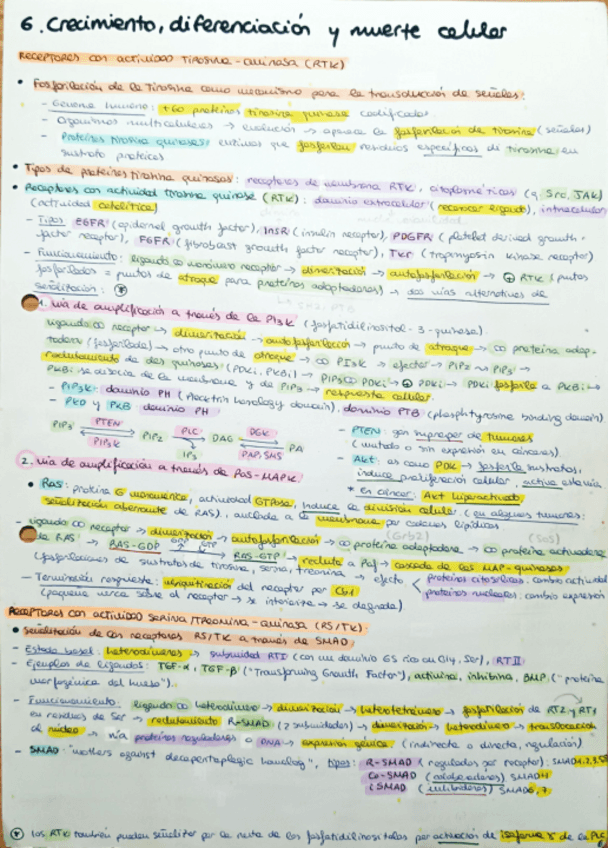 6. Crecimiento, diferenciación y muerte celular
RECEPTORES CON ACTIVIDAD TIROSINA-QUINASA (RTK)
• Fosforilación de la Tirosina como mecanismo para la transducción de señales:
- Genoma humano: +60 proteínas tirosina quinasa codificadas.
- Organismos multicelulares → evolución → aparece la fosforilación de tirosina (señales)
- Proteínas tirosina quinasas: enzimas que fosforilan residuos específicos de tirosina en
sustrato proteicos
• Tipos de proteínas tirosina quinasas: receptores de membrana RTK, citoplasmáticos (ej. Src, JAK)
• Receptores con actividad tirosina quinasa (RTK): dominio extracelular (reconocer ligando), intracelular
(actividad catalítica)
- Tipos: EGFR (epidermal growth factor), INSR (insulin receptor), PDGFR (platelet derived growth-
factor receptor), FGFR (fibroblast growth factor receptor), Tkr (tropomyosin kinase receptor)
- Funcionamiento: ligando ∞ monómero receptor → dimerización → autofosforilación → ⊕ RTK (puntos
fosforilados = puntos de atraque para proteínas adaptadoras) → dos vías alternativas de
señalización: ⊛
1. Vía de amplificación a través de la PI3K (fosfatidilinositol-3-quinasa).
Ligando ∞ receptor → dimerización → autofosforilación → punto de atraque → ∞ proteína adap-
tadora (fosforilada) → otro punto de atraque → ∞ PI3K → efector → PIP2 → PIP3 →
reclutamiento de dos quinasas (PDK1, PKB) → PIP3 ∞ PDK1 → ⊕ PDK1 → PDK1 fosforila a PKB →
PKB se disocia de la membrana y de PIP3 → respuesta celular.
- PIP3K: dominio PH (Pleckstrin homology domain), dominio PTB (phosphotyrosine binding domain)
- PKD y PKB dominio PH
PIP3 PTEN PI3K PIP2 PLC IP3 DAG DGK PAP, SMS PA
- PTEN: gen supresor de tumores
(mutado o sin expresión en cánceres).
- Akt: as como PDK → fosforila sustratos,
induce proliferación celular, activa
* en cáncer: Akt hiperactivado
2. Vía de amplificación a través de RAS-MAPK
• RAS: proteína G monomérica, actividad GTPasa, induce la división celular (en algunos tumores:
señalización aberrante de RAS), anclada a membrana por cadenas lipídicas
(Grb2) (SOS)
- Ligando ∞ receptor → dimerización → autofosforilación → ∞ proteína adaptadora → ∞ proteína activadora
de RAS → RAS-GDP GDP GTP RAS-GTP → recluta a Raf → cascada de las MAP-quinasas
(fosforilaciones de sustratos de tirosina, serina, treonina) → efecto
proteínas citosólicas: cambio actividad
proteínas nucleares: cambio expresión
- Terminación respuesta: ubiquitinación del receptor por Cbl
(pequeña marca sobre el receptor → se interioriza → se degrada).
RECEPTORES CON ACTIVIDAD SERINA/TREONINA-QUINASA (RS/TK):
• Señalización de los receptores RS/TK a través de SMAD
- Estado basal: heterodímeros → subunidad RTI (con un dominio GS rico en Gly, Ser), RTII
- Ejemplos de ligandos: TGF-α, TGF-β ("Transforming Growth Factor"), activina, inhibina, BMP, ("proteína
morfogénica del hueso").
- Funcionamiento: ligando ∞ heterodímero → dimerización → heterotetrámero → fosforilación de RT2 y RT1
en residuos de Ser → reclutamiento R-SMAD (2 subunidades) → dimerización → heterodímero → translocación
al núcleo → vía proteínas reguladoras o DNA → expresión génica (indirecta o directa, regulación)
- SMAD "mothers against decapentaplegic homolog", tipos: R-SMAD (regulados por receptor): SMAD1,2,3,5,8
Co-SMAD (colaboradores) SMAD4
iSMAD (inhibidores) SMAD6,7.
⊛ Los RTK también pueden señalizar por la ruta de los fosfatidilinositoles por activación de isoforma γ de la PLC